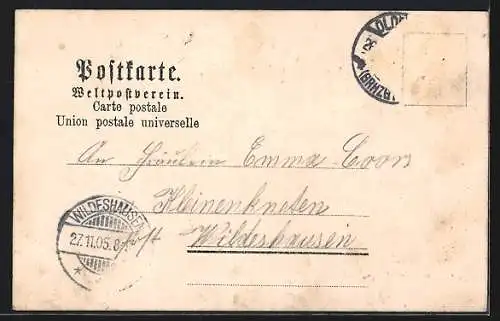 Postkarte.
Weltpostverein.
Carte postale
Union postale universelle
An Fräulein Emma Coors
Kleinenkneten
Post Wildeshausen
WILDESHAUSEN
27.11.05.8